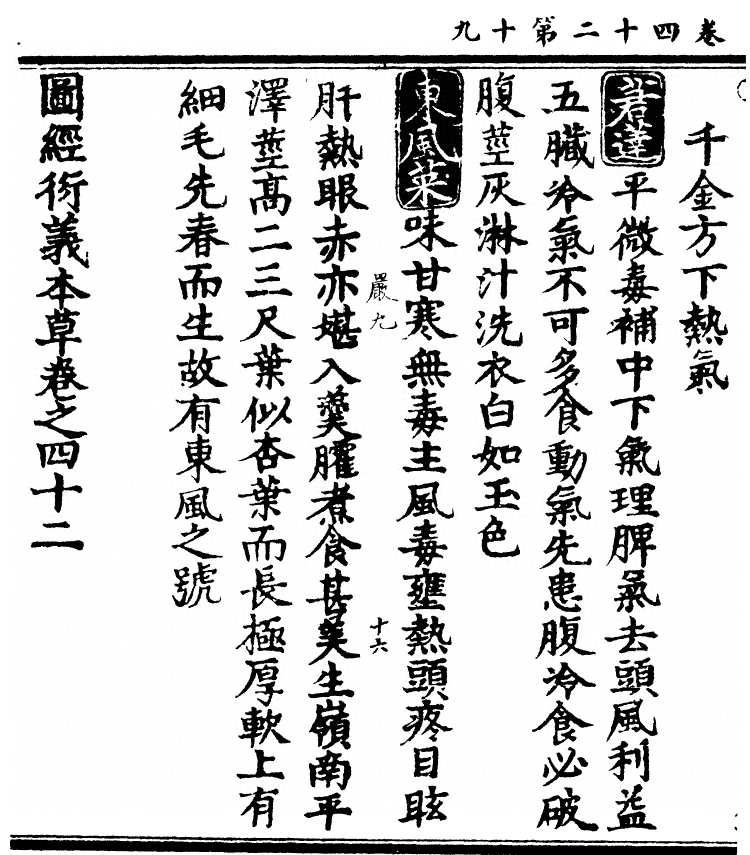 卷四十二第十九
千金方下熱氣
莙薘平微毒補中下氣理脾氣去頭風利益
五臟冷氣不可多食動氣先患腹冷食必破
腹莖灰淋汁洗衣白如玉色
東風菜味甘寒無毒主風毒壅熱頭疼目眩
嚴九
十六
肝熱眼赤亦堪入羹臛煮食甚美生嶺南平
澤莖高二三尺葉似杏葉而長極厚軟上有
細毛先春而生故有東風之號
圖經衍義本草卷之四十二